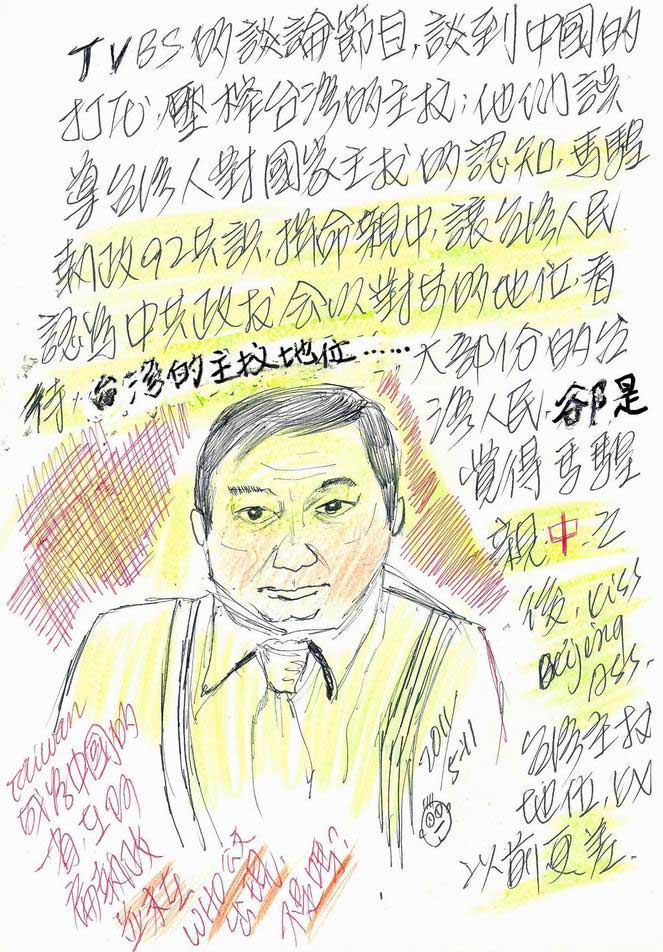 TVBS的談論節目,談到中國的
打壓,壓榨台灣的主权;他们誤
導台灣人對國家主权的認知,馬騜
執政92共識,拚命親中,讓台灣人民
認為中共政权,会以對等的地位,看
待,台灣的主权地位……大部份的台
灣人民,卻是
覺得馬騜
親中之
後,kiss
Beijing
ass.
台灣主权
地位,比
以前更差.
2011/
5.11
Taiwan
成為中國的
省,在
執政
WHO
出現,